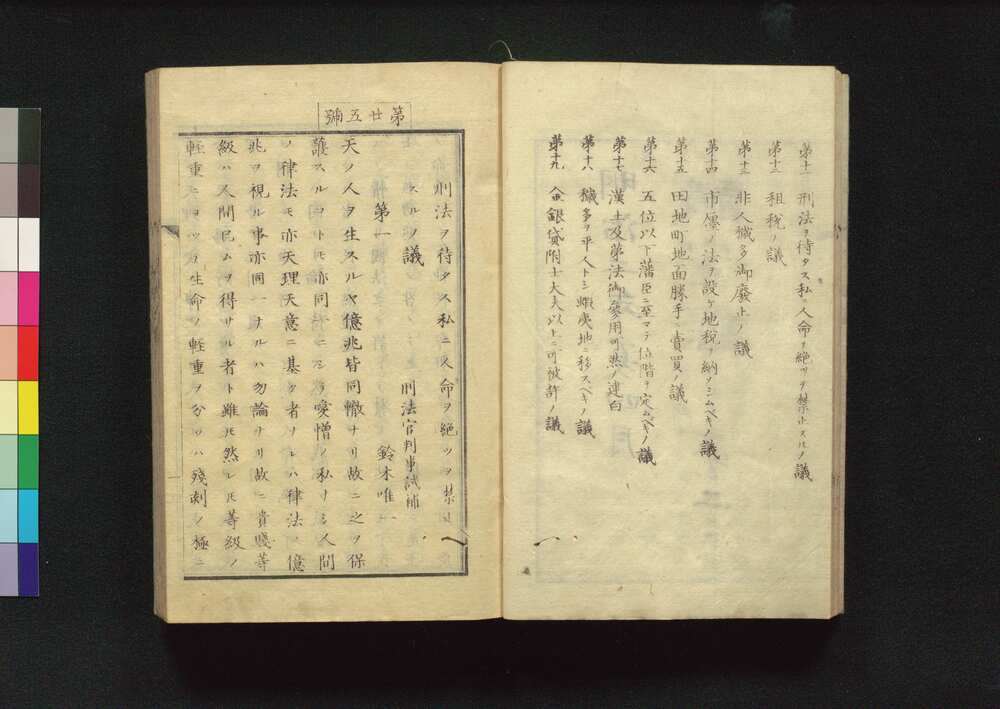 第十一 刑法ヲ待タス私ニ人命ヲ絶ツヲ禁止スルノ議
第十二 租税ノ議
第十三 非人穢多御廢止ノ議
第十四 市廛ノ法ヲ設ケ地税ヲ納ソシムヘキノ議
第十五 田地町地面勝手ニ賣買ノ議
第十六 五位以下藩臣ニ至マテ位階ヲ定ムヘキノ議
第十七 漢土及第法御參用可然ノ建白
第十八 穢多ヲ平人トシ蝦夷地ニ移スベキノ議
第十九 金銀貸附士大夫以上ニ可被許ノ議
第廿五號
刑法ヲ待タス私ニ人命ヲ絶ツヲ禁止
スルノ議
刑法官判事試補
第一 鈴木唯一
天ノ人ヲ生スルヤ億兆皆同轍ナリ故ニ之ヲ保
護スルコトモ亦同一ニシテ愛憎ノ私ナシ人間
ノ律法モ亦天理天意ニ基ク者ナレハ律法ノ億
兆ヲ視ル事亦同一ナルハ勿論ナリ故ニ貴賤等
級ハ人間已ムヲ得サル者ト雖モ然レモ等級ノ
輕重ニヨツテ生命ノ輕重ヲ分ツハ殘刺ノ極ニ